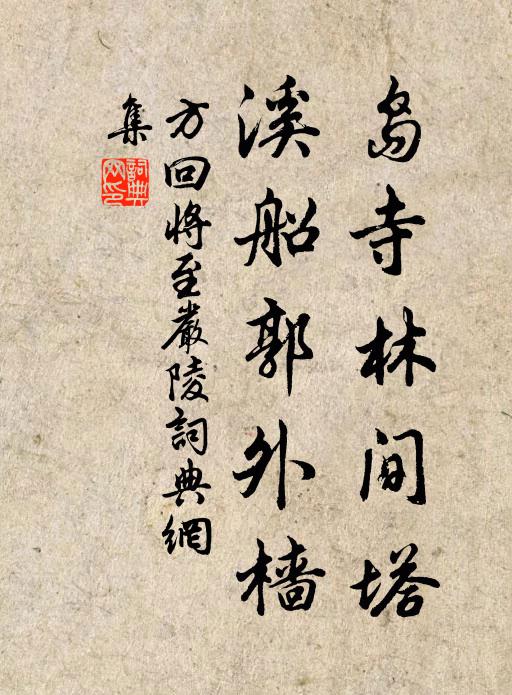 島寺林間塔
溪船郭外檣
方回將至嚴陵詞典網
集
詞典網印